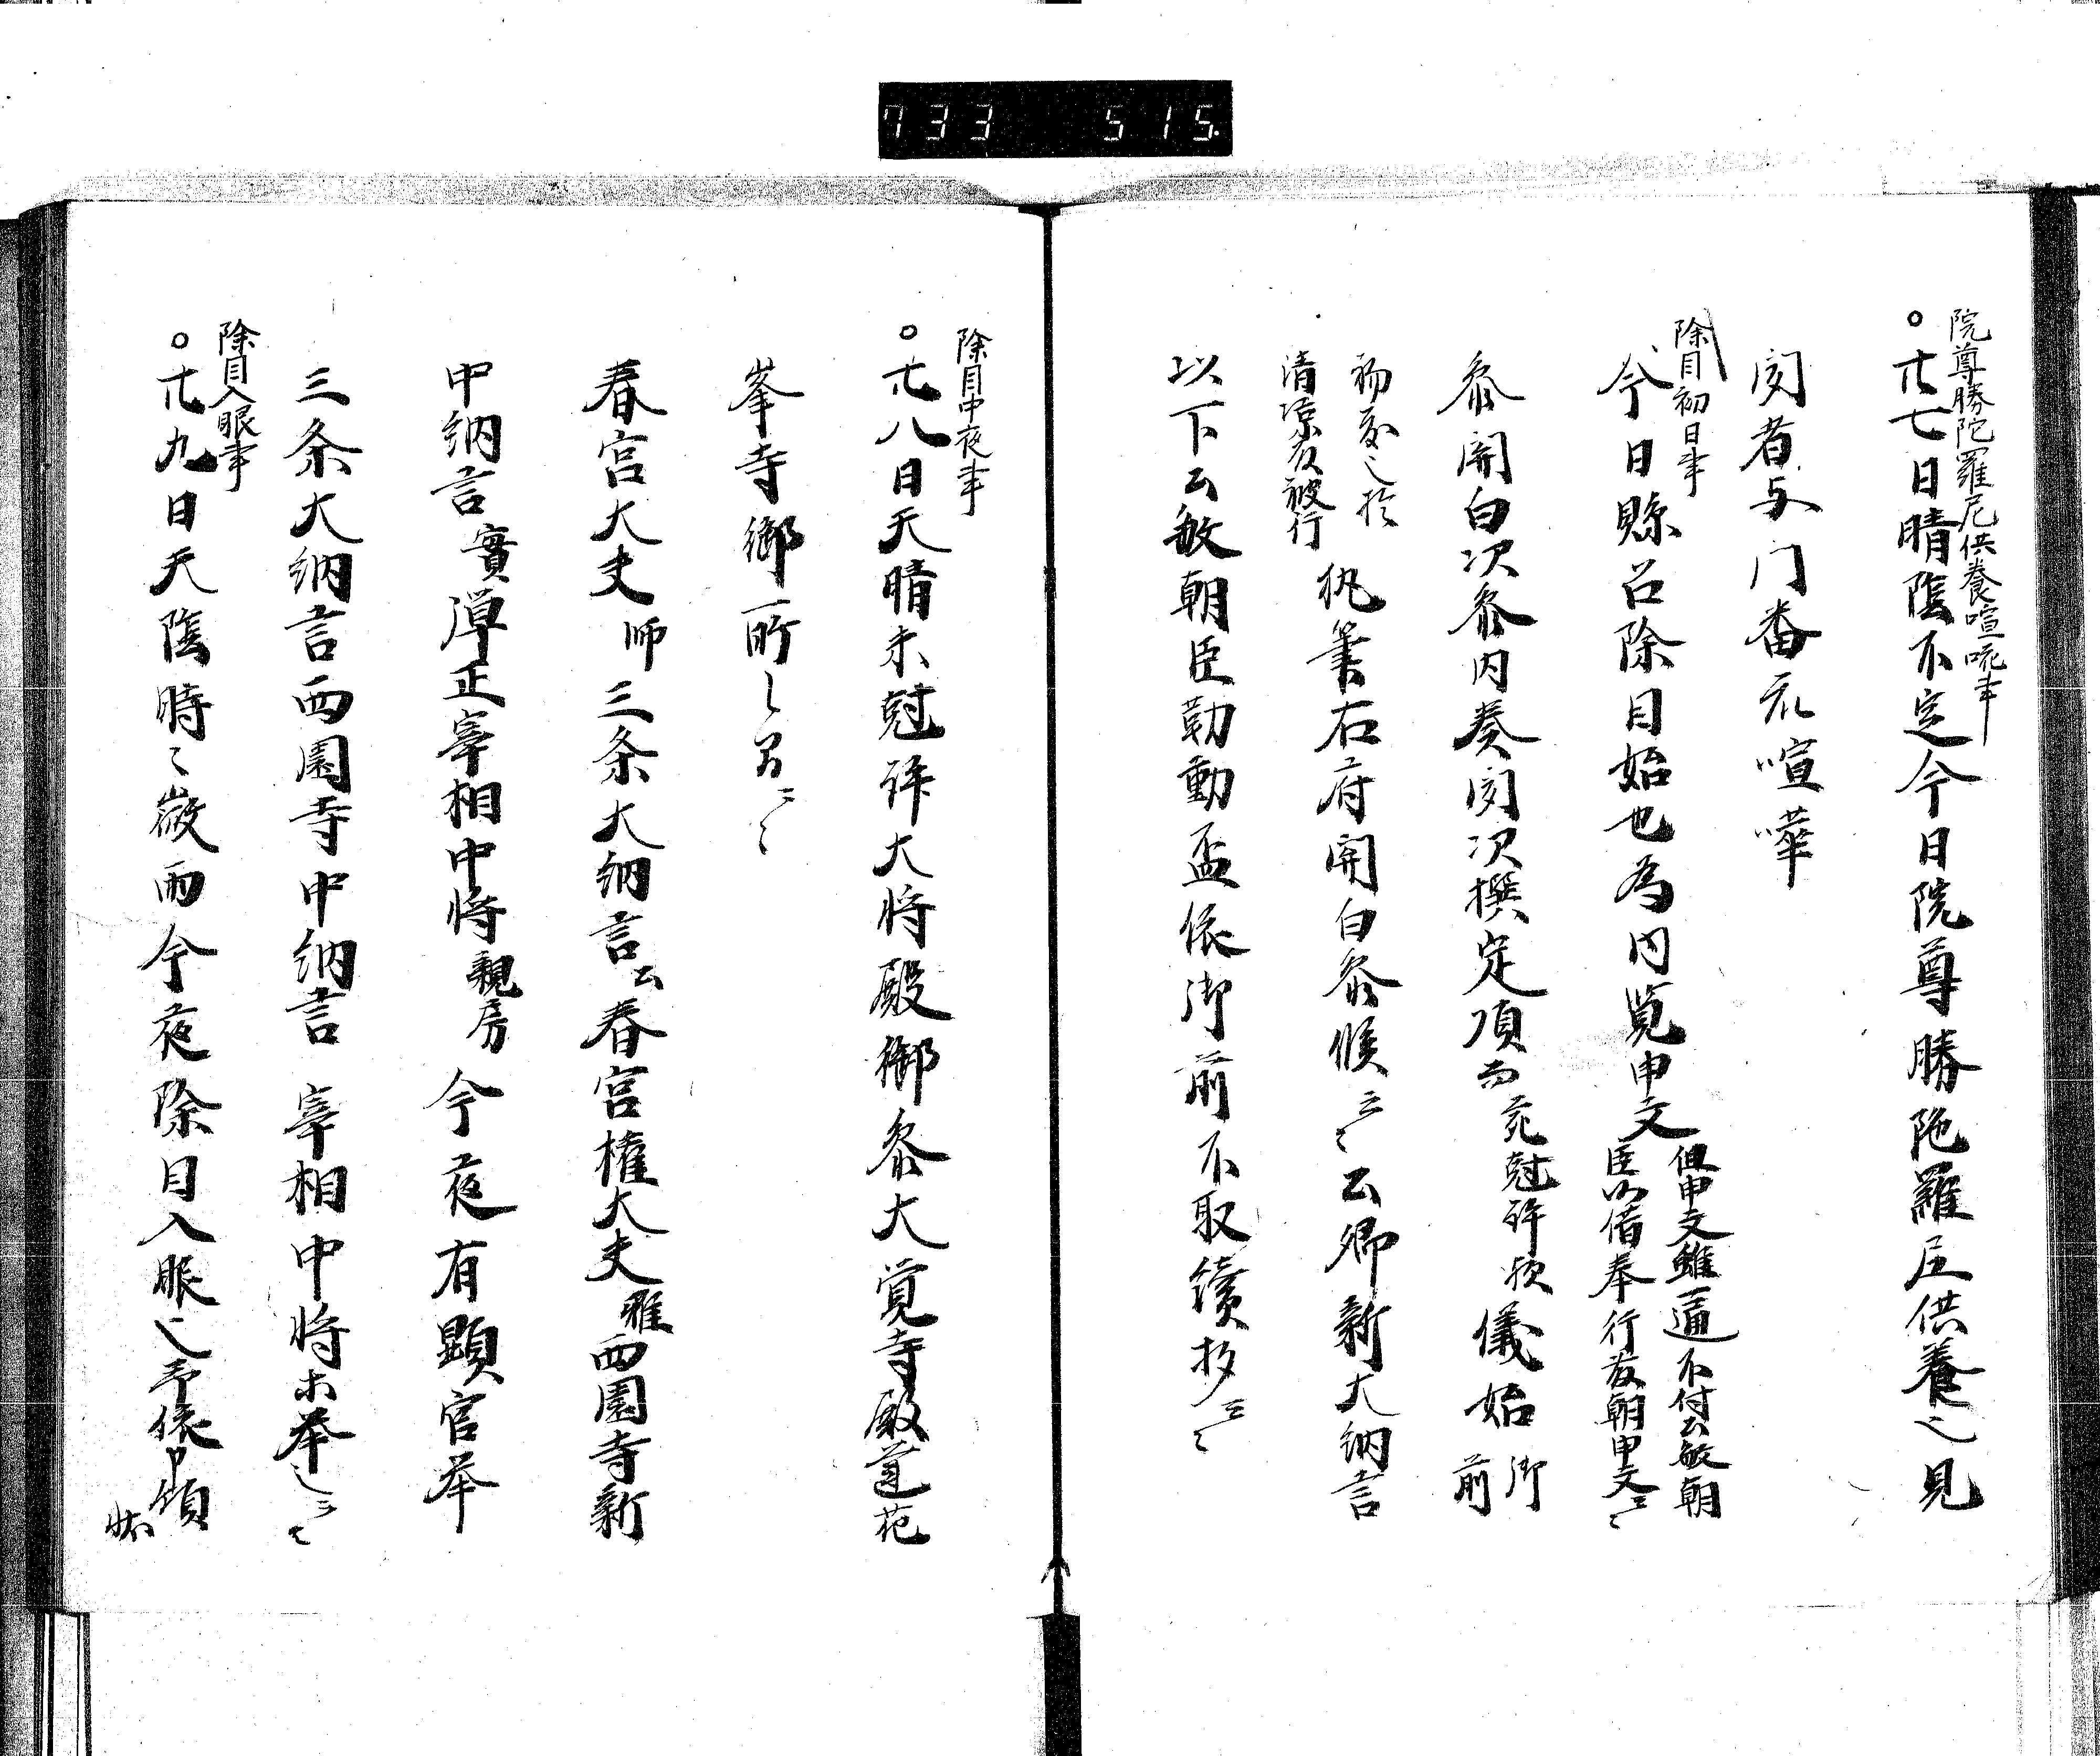 733 515
院尊勝陀羅尼供養喧嘩事
○廿七日晴陰不定今日院尊勝陀羅尼供養也見
聞者与門番衆喧嘩
除目初日事
今日縣召除目始也為内覧申文
但申文雖一通不付公敏朝
臣以借奉行房朝申文云々
参関白次参内奏聞次撰定頃
剋許歟儀始御
前
清涼
被行
執筆右府関白参候云々公卿新大納言
以下公敏朝臣勤勧盃依御前不取續杓云々
除目中夜事
○廿八日天晴未剋許大将殿御参大覚寺殿蓮花
峯寺御所之男云々
春宮大夫師三条大納言公春宮権大夫雅西園寺新
中納言實弾正宰相中将親房今夜有顕官挙
三条大納言西園寺中納言宰相中将等挙之云々
除目入眼事
○廿九日天陰時々微雨今夜除目入眼也予依